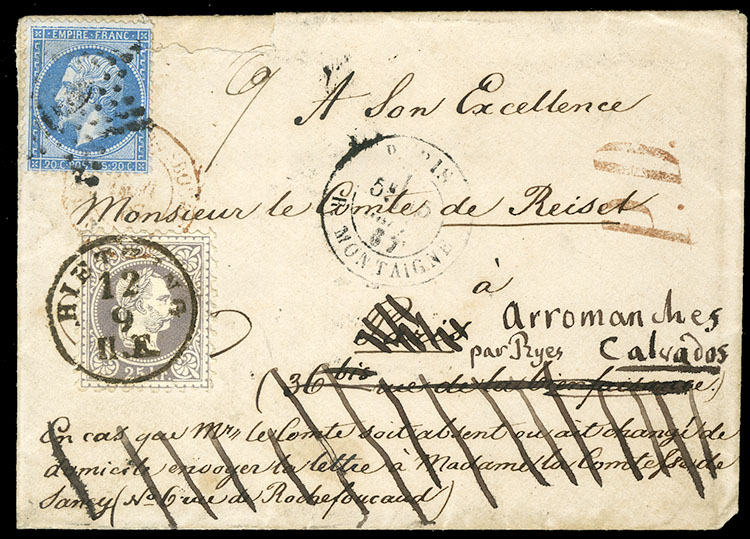 EMPIRE FRANC
20 C POSTES 20 C
A Son Excellence
P.D.
PARIS
MONTAIGNE
Monsieur le Comte de Reiset
HIETZING
12
9
II.F.
25 kr.
à
Arromanches
par Ryes Calvados
(36 bis rue de la bienfaisance.)
En cas que Mr. le Comte soit absent ou ait changé de
domicile envoyer la lettre à Madame la Comtesse de
Sancy (No 6 rue de Rochefoucaud)